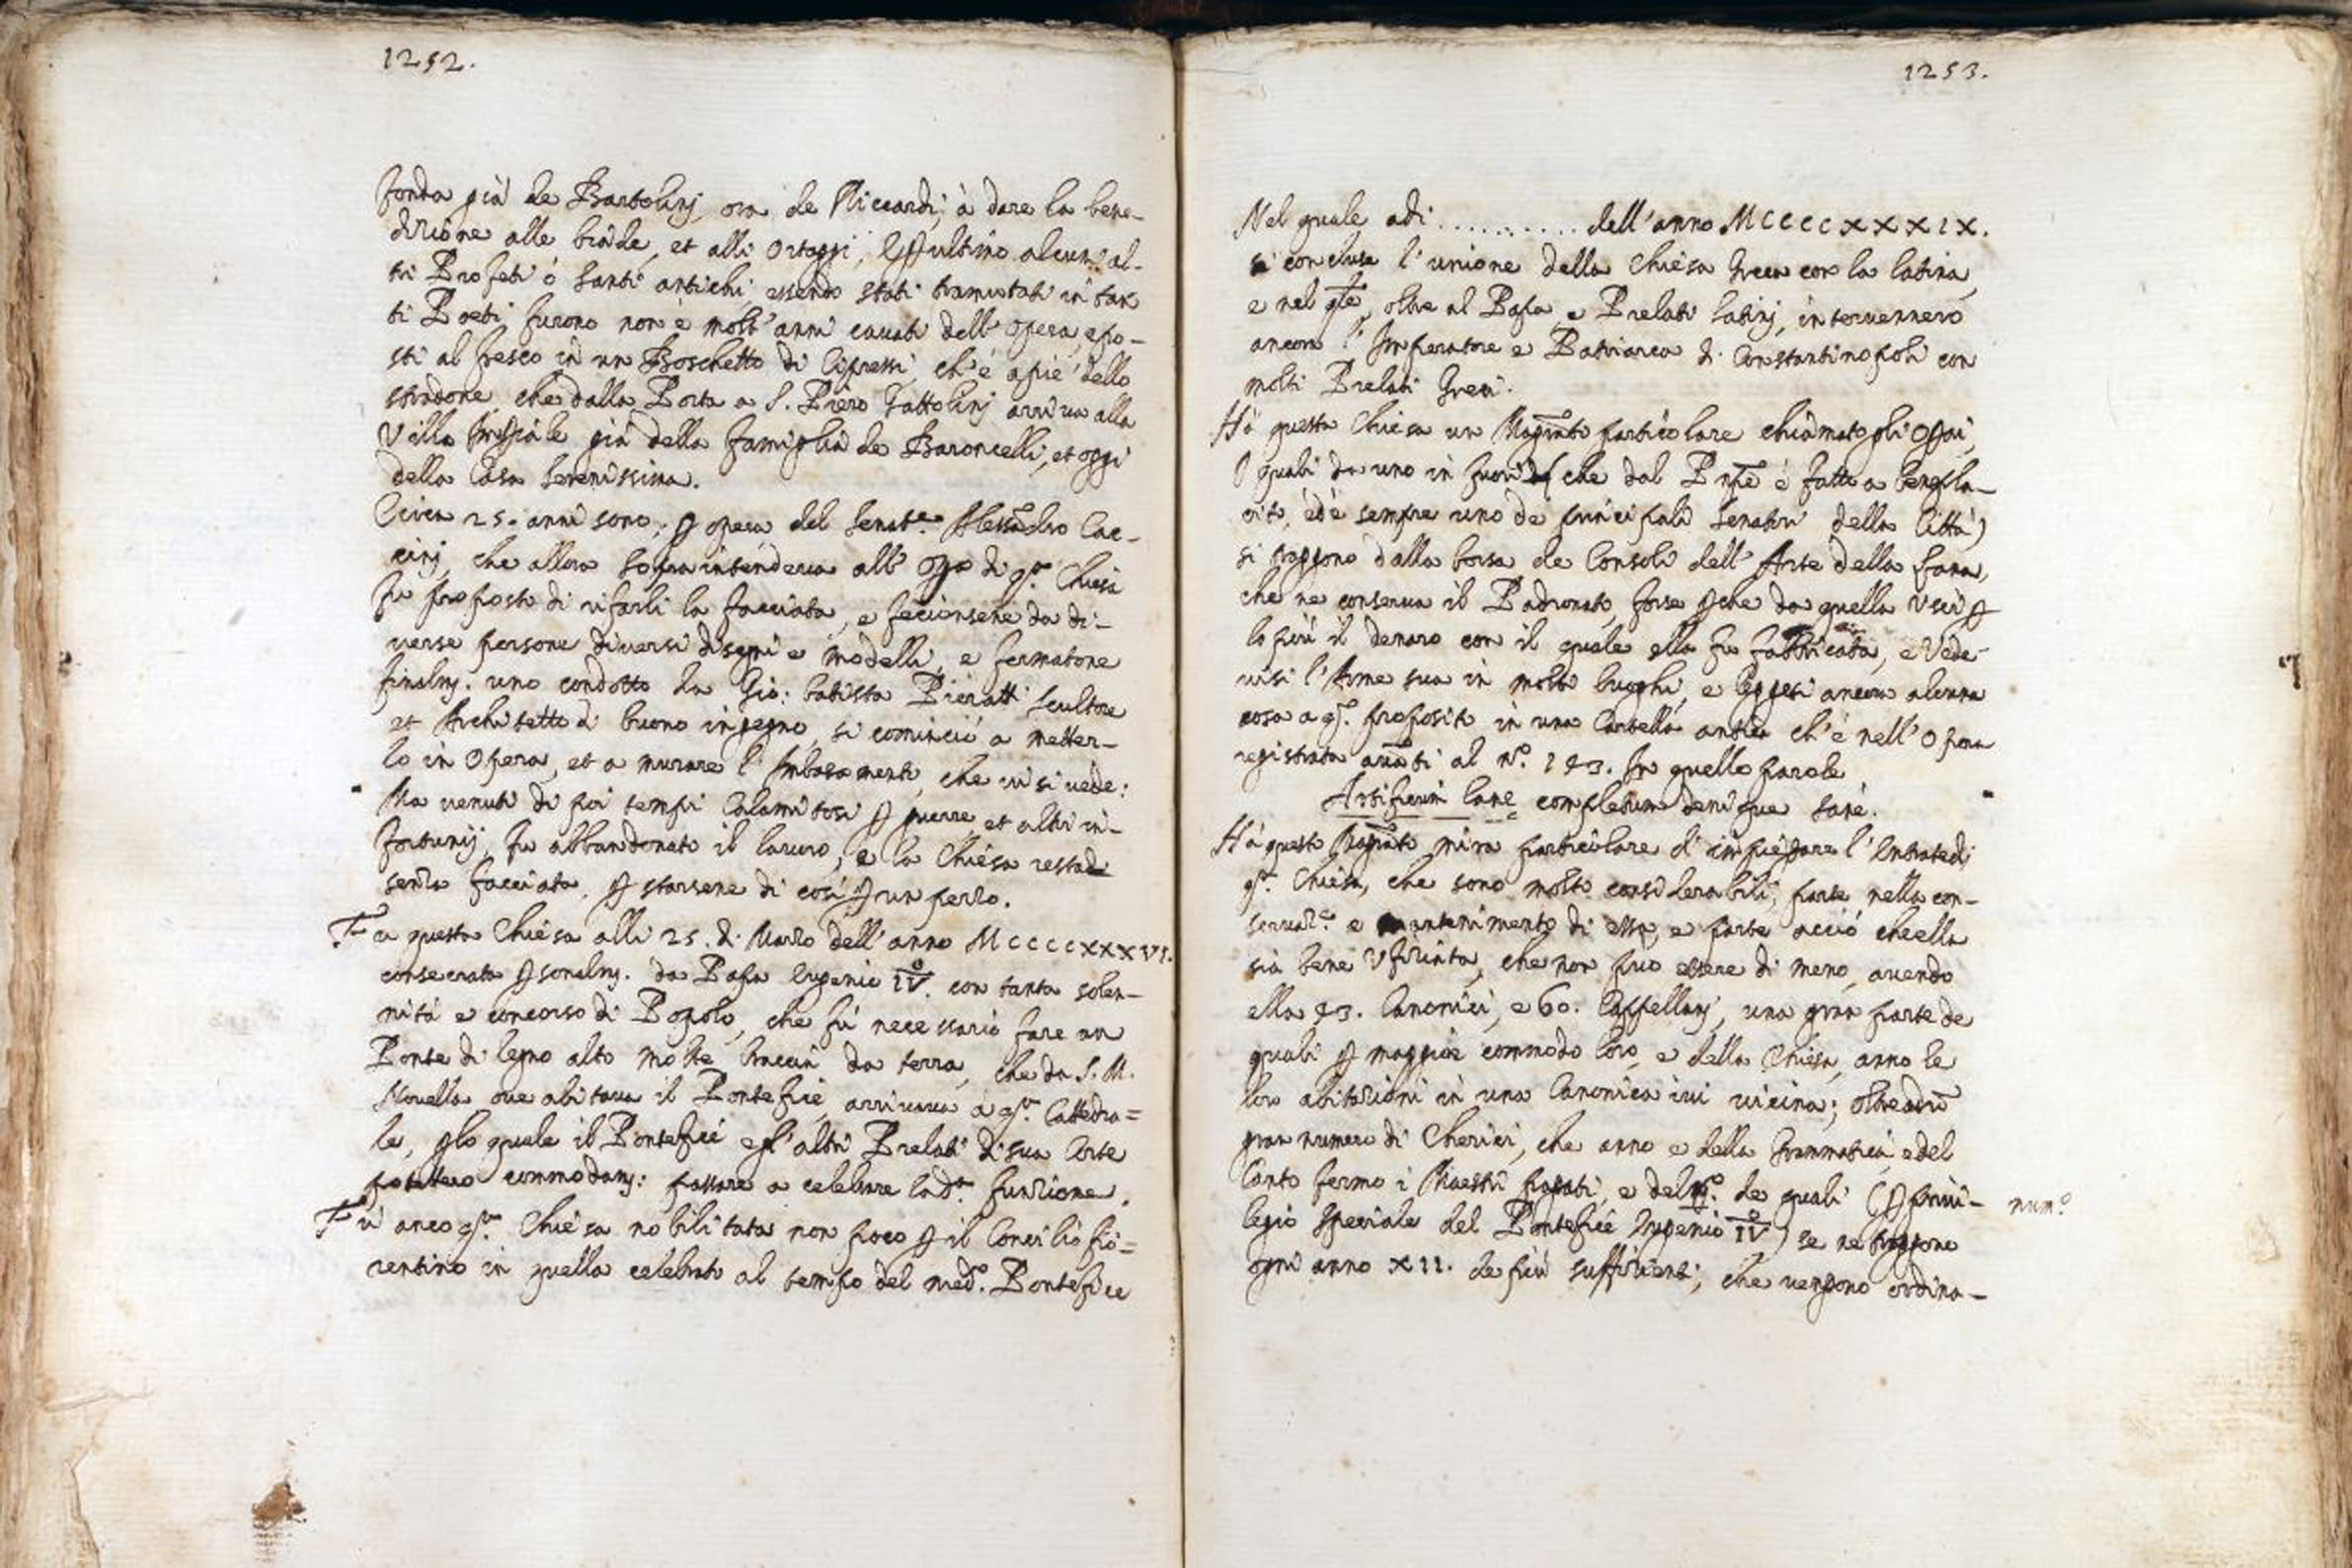 1252.
fonda già de Bartolinj ora de Riccardi, à dare la bene-
dizione alle biade, et alli Ortaggi, e p ultimo alcuni al-
tri Profeti ò Santi antichi, essendo stati tramutati in tan
ti Poeti furono non è molt' anni cavati dell' opera, e po-
sti al fresco in un Boschetto di Cipressi, ch' è a piè dello
stradone, che dalla Porta a S. Piero Gattolinj arriva alla
Villa Impiale già della famiglia de Baroncelli, et oggi
della Casa Serenissima.
Circa 25. anni sono, p opera del Senat.re Alessandro Cac-
cinj, che allora soprainténdeva all' Opa di q.ta Chiesa
fu proposto di rifarli la facciata, e fecionsene da di-
verse persone diversi disegni e modelli, e fermatone
finalm. uno condotto da Gio: batista Pieratti Scultore
et Architetto di buono ingegno, si cominciò a metter-
lo in Opera, et a murare l' Imbasamento, che vi si vede:
Ma venuti di poi tempi Calamitosi p guerre, et altri in-
fortunij, fu abbandonato il lavoro, e la Chiesa restadi
senza facciata, p starsene di così p un pezzo.
Fu questa Chiesa alli 25. di Marzo dell' anno MCCCCXXXVI.
consecrata psonalm. da Papa Eugenio IV.o con tanta solen-
nità e concorso di Popolo, che fù necessario fare un
Ponte di legno alto molte braccia da terra, che da S. M.
Novella ove abitava il Pontefice arrivava à q.ta Cattedra=
le, plo quale il Pontefice e gl' altri Prelati di sua Corte
potettero commodam: passare a celebrare la d.a funzione.
Fù anco q.ta Chiesa nobilitata non poco p il Concilio fio=
rentino in quella celebrato al tempo del med.o Pontefice
1253.
Nel quale adi .......... dell' anno MCCCCXXXIX.
si concluse l' unione della Chiesa Greca con la latina,
e nel qle, oltre al Papa e Prelati latinj, intervennero
ancora l' Imperatore e Patriarca di Constantinopoli con
molti Prelati Greci.
Hà questa Chiesa un Magrato particolare chiamato gli Opai,
I quali da uno in fuori (che dal Prnpe è fatto a benepla-
cito, ed è sempre uno de principali Senatori della Città)
si traggono dalla borsa de Consoli dell' Arte della lana,
che ne conserva il Padronato, forse pche da quella uscì p
lo più il denaro con il quale ella fu fabbricata, e Vede-
visi l' Arme sua in molti luoghi, e leggesi ancora alcuna
cosa a q.o proposito in una Cartella antica ch' è nell' Opera
registrata avanti al N.o 143. In quelle parole
Artificium lanę completum denique sanè.
Hà questo Magrato mira particulare d' impiegare l' Entrate di
q.ta Chiesa, che sono molto considerabili, parte nella con-
servaz.e e mantenimento di essa, e parte acciò che ella
sia bene Ufiziata, che non puo essere di meno, avendo
ella 43. Canonici, e 60. Cappellanj, una gran parte de
quali p maggior commodo loro, e della Chiesa, anno le
loro abitazioni in una Canonica ivi vicina; oltre ad un
gran numero di Cherici, che anno e della Grammatica, e del
Canto fermo i Maestri pagati, e del de quali (p privi-
num.o
legio speciale del Pontefice Eugenio IV.o) se ne traggono
ogni anno XII. de più suffizienti, che vengono ordina-